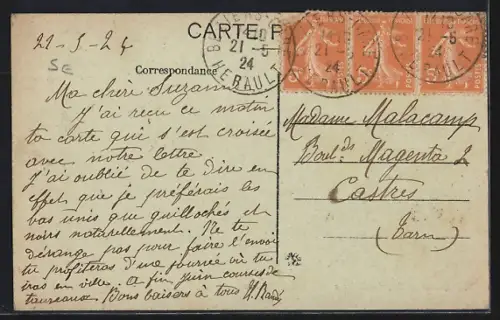 CARTE P
21-5-24
SE
BEZIERS
21-5
24
HERAULT
Correspondance
Ma chère Suzanne
J'ai reçu ce matin
ta carte qui s'est croisée
avec notre lettre
J'ai oublié de te dire en
effet que je préférais les
bas unis que guillochés et
noirs naturellement. Ne te
dérange pas pour faire l'envoi
tu profiteras d'une journée où tu
iras en ville. a fin juin courses de
taureaux Bons baisers à tous
Madame Malacamp
Boul. ds Magenta 2
Castres
(Tarn)